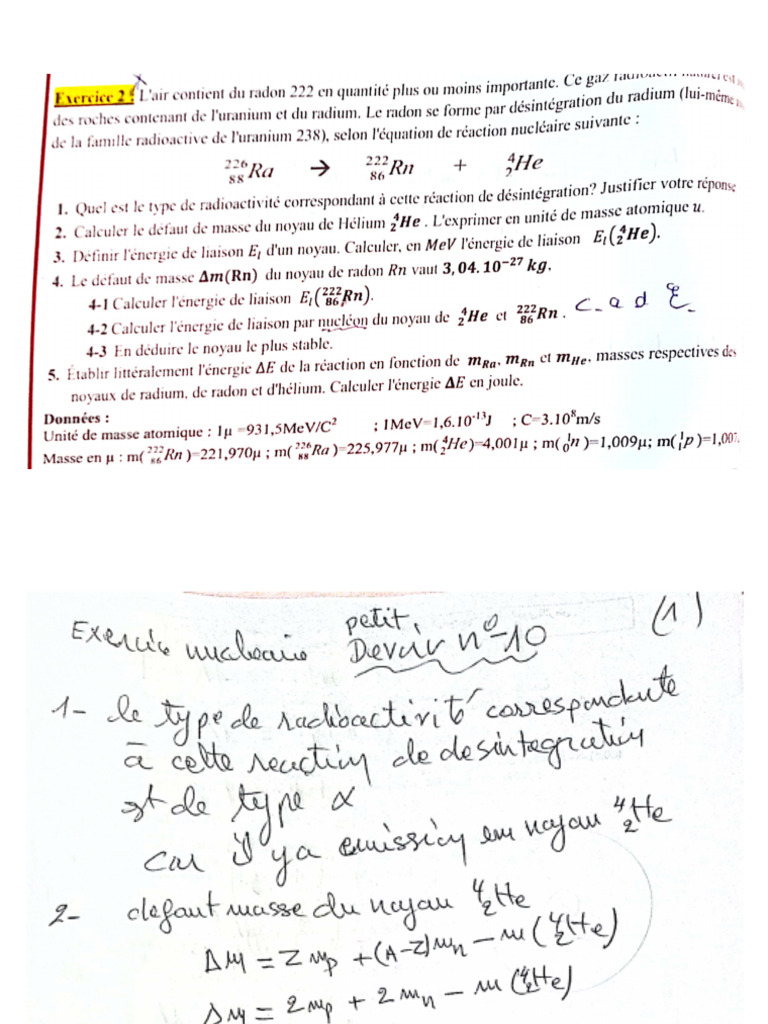 Exercice 2 : L'air contient du radon 222 en quantité plus ou moins importante. Ce gaz
des roches contenant de l'uranium et du radium. Le radon se forme par désintégration du radium (lui-même
de la famille radioactive de l'uranium 238), selon l'équation de réaction nucléaire suivante :
²²⁶₈₈Ra → ²²²₈₆Rn + ⁴₂He
1. Quel est le type de radioactivité correspondant à cette réaction de désintégration? Justifier votre réponse
2. Calculer le défaut de masse du noyau de Hélium ⁴₂He . L'exprimer en unité de masse atomique u.
3. Définir l'énergie de liaison Eₗ d'un noyau. Calculer, en MeV l'énergie de liaison Eₗ(⁴₂He).
4. Le défaut de masse Δm(Rn) du noyau de radon Rn vaut 3,04.10⁻²⁷ kg.
4-1 Calculer l'énergie de liaison Eₗ(²²²₈₆Rn).
4-2 Calculer l'énergie de liaison par nucléon du noyau de ⁴₂He et ²²²₈₆Rn . C-a d E
4-3 En déduire le noyau le plus stable.
5. Établir littéralement l'énergie ΔE de la réaction en fonction de mRa, mRn et mHe, masses respectives des
noyaux de radium, de radon et d'hélium. Calculer l'énergie ΔE en joule.
Données :
Unité de masse atomique : 1µ =931,5MeV/C² ; 1MeV=1,6.10⁻¹³J ; C=3.10⁸m/s
Masse en µ : m(²²²₈₆Rn)=221,970µ ; m(²²⁶₈₈Ra)=225,977µ ; m(⁴₂He)=4,001µ ; m(¹₀n)=1,009µ; m(¹₁p)=1,007
(1)
petit
Exercice nucleaire Devoir n°10
1- le type de radioactivité correspondante
à cette reaction de desintegration
est de type α
car il y a emission em noyau ⁴₂He
2- defaut masse du noyau ⁴₂He
ΔM = Z mp + (A-Z) mn - m(⁴₂He)
ΔM = 2mp + 2mn - m(⁴₂He)